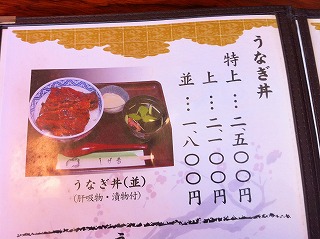 うなぎ丼
特上…二、五〇〇円
上…二、一〇〇円
並…一、八〇〇円
うなぎ丼(並)
(肝吸物・漬物付)